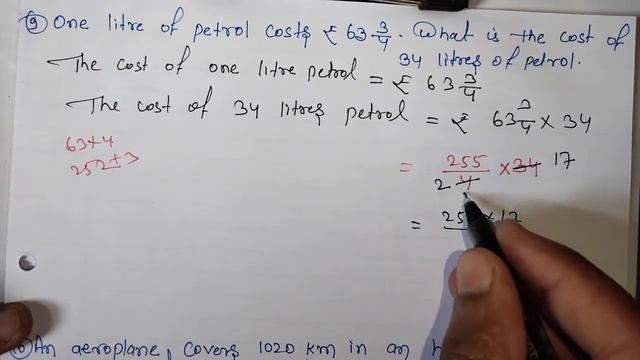 ⑨ One litre of petrol costs ₹ 63 3/4. What is the cost of
34 litres of petrol.
The cost of one litre petrol = ₹ 63 3/4
The cost of 34 litres petrol = ₹ 63 3/4 × 34
63×4
252+3
= 255/4 × 34 17
2
= 25 × 17
An aeroplane, covers 1020 km in an